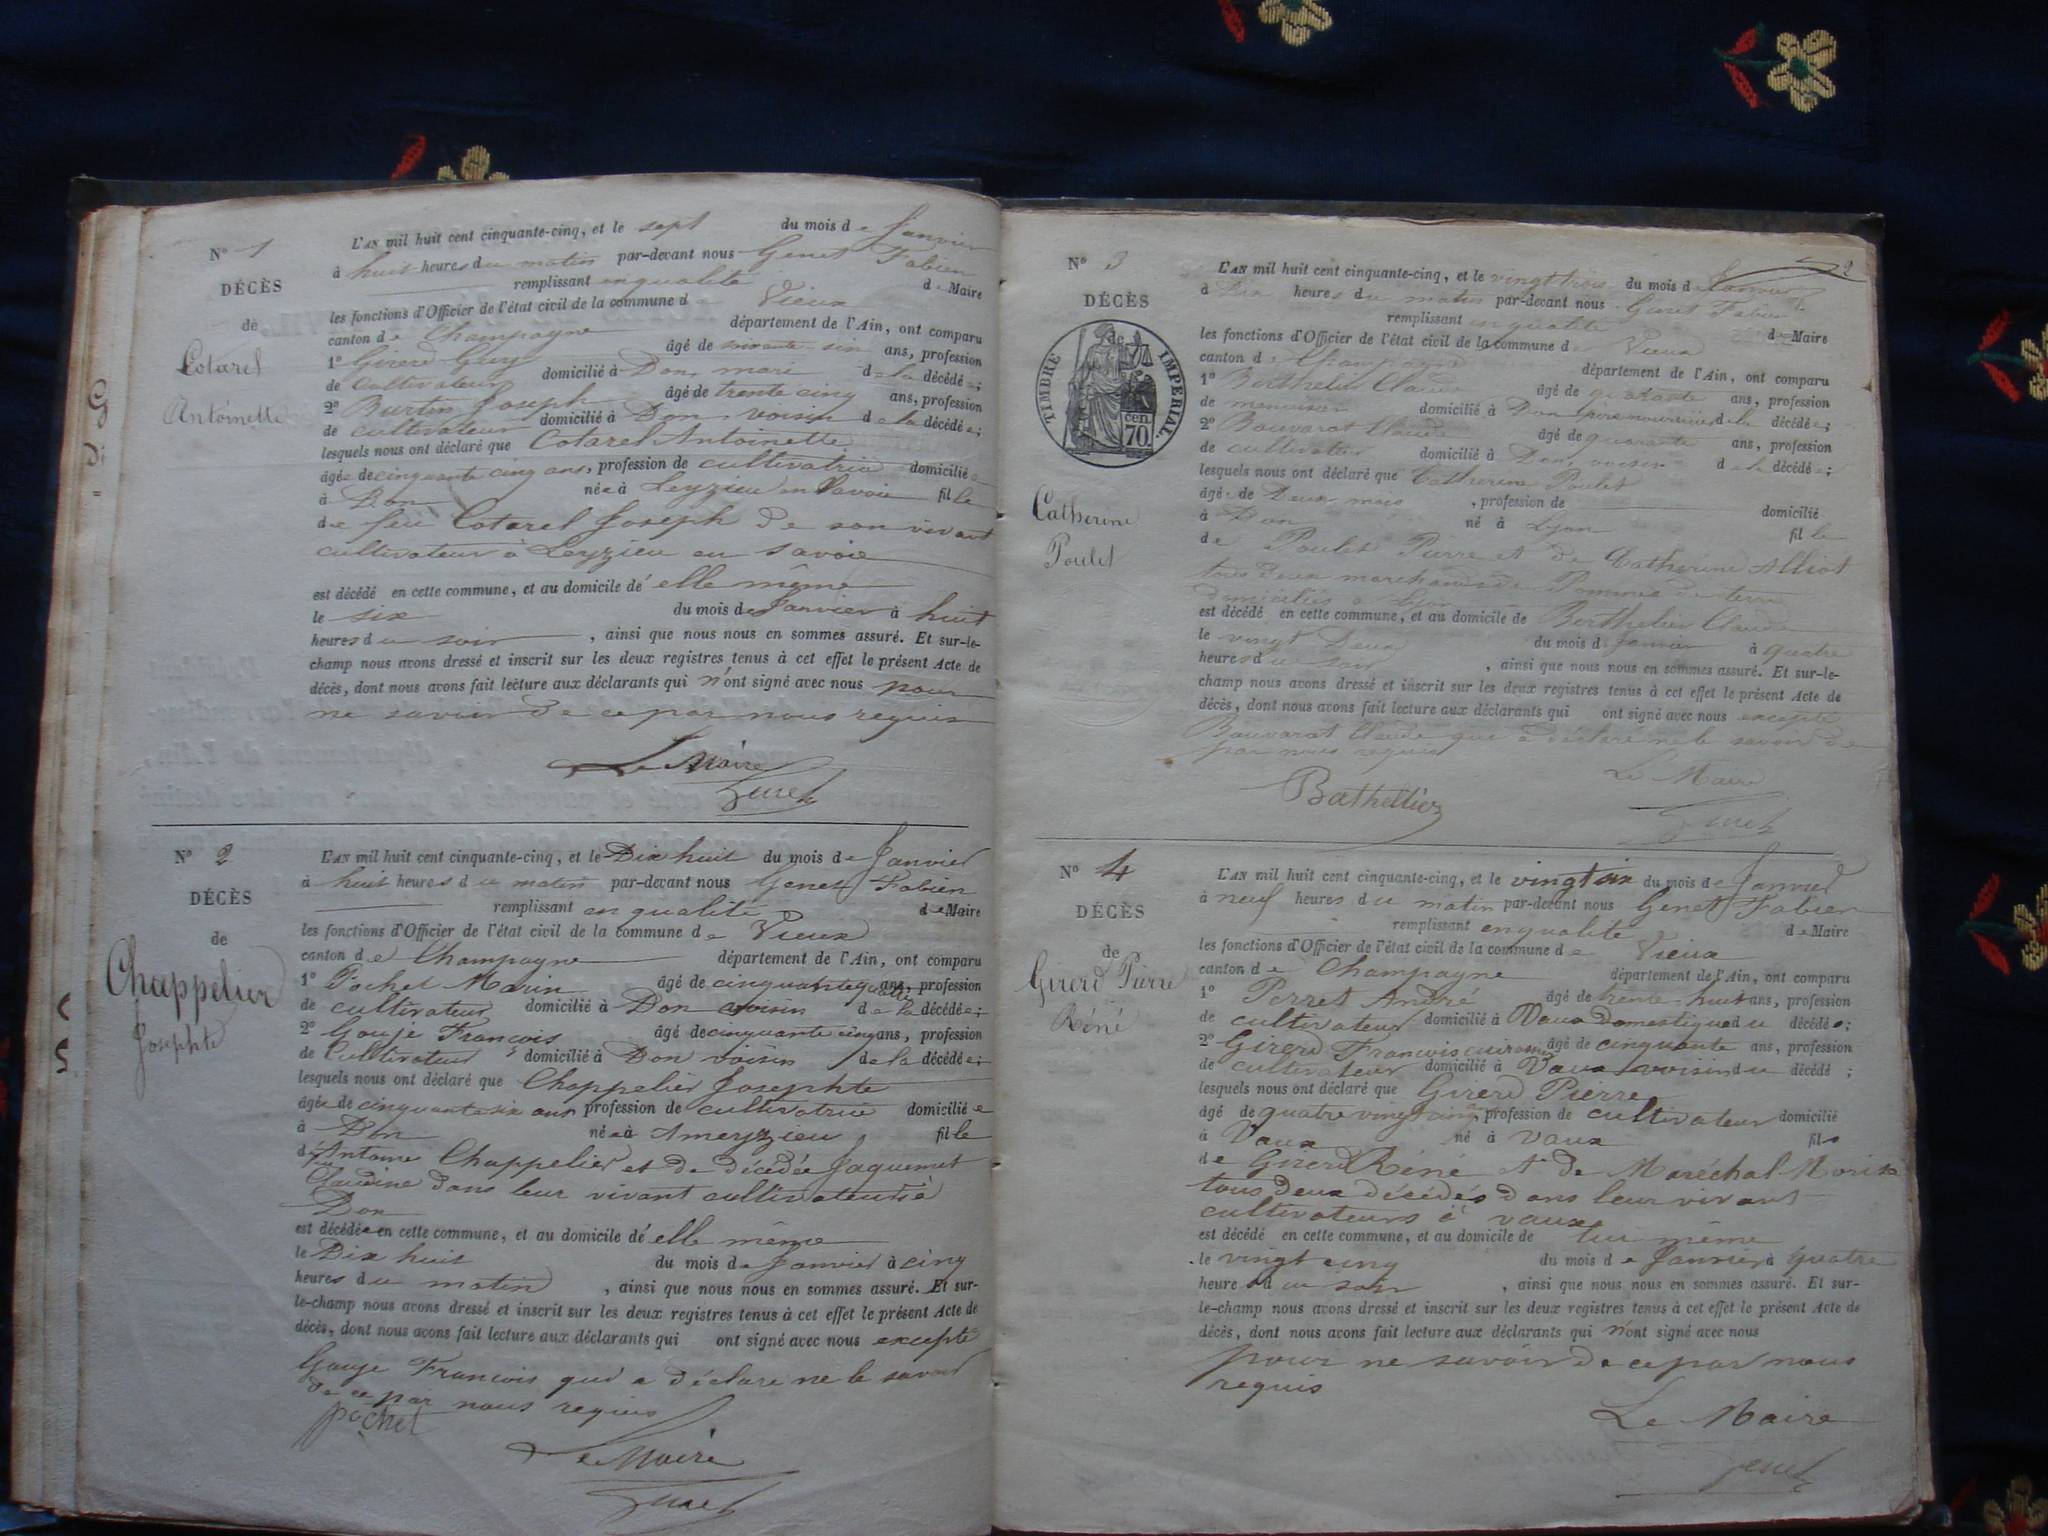 N° 1
DÉCÈS
de
Cotarel
Antoinette
L'AN mil huit cent cinquante-cinq, et le sept du mois de Janvier
à huit heures du matin par-devant nous Genet Fabien
remplissant en qualité de Maire
les fonctions d'Officier de l'état civil de la commune de Vieux
canton de Champagne département de l'Ain, ont comparu
1° Girerd Guy âgé de soixante-six ans, profession
de Cultivateur domicilié à Don, mari de la décédée;
2° Burtin Joseph âgé de trente cinq ans, profession
de cultivateur domicilié à Don voisin de la décédée;
lesquels nous ont déclaré que Cotarel Antoinette
âgée de cinquante cinq ans, profession de cultivatrice domiciliée
à Don née à Leyzieu en Savoie fille
de feu Cotarel Joseph de son vivant
cultivateur à Leyzieu en Savoie
est décédé en cette commune, et au domicile d'elle même
le six du mois de Janvier à huit
heures du soir, ainsi que nous nous en sommes assuré. Et sur-le-
champ nous avons dressé et inscrit sur les deux registres tenus à cet effet le présent Acte de
décès, dont nous avons fait lecture aux déclarants qui n'ont signé avec nous pour
ne savoir de ce par nous requis
Le Maire
Genet
N° 2
DÉCÈS
de
Chappelier
Josephte
L'AN mil huit cent cinquante-cinq, et le Dix huit du mois de Janvier
à huit heures du matin par-devant nous Genet Fabien
remplissant en qualité de Maire
les fonctions d'Officier de l'état civil de la commune de Vieux
canton de Champagne département de l'Ain, ont comparu
1° Pochet Marin âgé de cinquante quatre ans, profession
de cultivateur domicilié à Don voisin de la décédée;
2° Gouje François âgé de cinquante cinq ans, profession
de Cultivateur domicilié à Don voisin de la décédée;
lesquels nous ont déclaré que Chappelier Josephte
âgée de cinquante six ans profession de cultivatrice domiciliée
à Don née à Ameyzieu fille
d'Antoine Chappelier et de décédée Jaquemet
Claudine dans leur vivant cultivateurs à
Don
est décédée en cette commune, et au domicile d'elle même
le Dix huit du mois de Janvier à cinq
heures du matin, ainsi que nous nous en sommes assuré. Et sur-
le-champ nous avons dressé et inscrit sur les deux registres tenus à cet effet le présent Acte de
décès, dont nous avons fait lecture aux déclarants qui ont signé avec nous excepté
Gouje François qui a déclaré ne le savoir
de ce par nous requis
pochet
Le Maire
Genet
2
N° 3
DÉCÈS
de
TIMBRE IMPERIAL.
70. cen
Catherine
Poulet
L'AN mil huit cent cinquante-cinq, et le vingt trois du mois de Janvier
à Dix heures du matin par-devant nous Genet Fabien
remplissant en qualité de Maire
les fonctions d'Officier de l'état civil de la commune de Vieux
canton de Champagne département de l'Ain, ont comparu
1° Berthelier Claude âgé de quarante ans, profession
de menuisier domicilié à Don père nourricier de la décédée;
2° Bouvarat Claude âgé de quarante ans, profession
de cultivateur domicilié à Don, voisin de la décédée;
lesquels nous ont déclaré que Catherine Poulet
âgée de Deux mois, profession de domicilié
à Don né à Lyon fille
de Poulet Pierre et de Catherine Alliot
tous deux marchands de Pommes de terre
domiciliés à Lyon
est décédé en cette commune, et au domicile de Berthelier Claude
le vingt Deux du mois de Janvier à quatre
heures du soir, ainsi que nous nous en sommes assuré. Et sur-le-
champ nous avons dressé et inscrit sur les deux registres tenus à cet effet le présent Acte de
décès, dont nous avons fait lecture aux déclarants qui ont signé avec nous excepté
Bouvarat Claude qui a déclaré ne le savoir de
par nous requis
Le Maire
Genet
N° 4
DÉCÈS
de
Girerd Pierre
Réné
L'AN mil huit cent cinquante-cinq, et le vingt six du mois de Janvier
à neuf heures du matin par-devant nous Genet Fabien
remplissant en qualité de Maire
les fonctions d'Officier de l'état civil de la commune de Vieux
canton de Champagne département de l'Ain, ont comparu
1° Perret André âgé de trente-huit ans, profession
de cultivateur domicilié à Vaux Domestique du décédé;
2° Girerd François âgé de cinquante ans, profession
de cultivateur domicilié à Vaux voisin du décédé;
lesquels nous ont déclaré que Girerd Pierre
âgé de quatre vingt cinq, profession de cultivateur domicilié
à Vaux né à Vaux fils
de Girerd Réné et de Maréchal
tous deux décédés dans leur vivant
cultivateurs à vaux
est décédé en cette commune, et au domicile de lui même
le vingt cinq du mois de Janvier à quatre
heures du soir, ainsi que nous nous en sommes assuré. Et sur-
le-champ nous avons dressé et inscrit sur les deux registres tenus à cet effet le présent Acte de
décès, dont nous avons fait lecture aux déclarants qui n'ont signé avec nous
pour ne savoir de ce par nous
requis
Le Maire
Genet